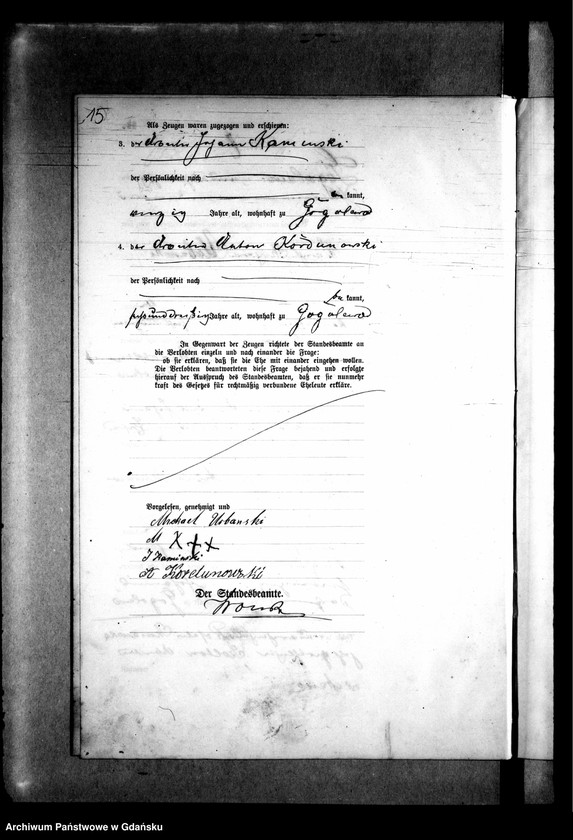 15
Als Zeugen waren zugezogen und erschienen:
3. der Arbeiter Johann Kamienski
der Persönlichkeit nach
be kannt,
vierzig Jahre alt, wohnhaft zu Gogolewo
4. der Arbeiter Anton Kordunowski
der Persönlichkeit nach
be kannt,
sechsunddreißig Jahre alt, wohnhaft zu Gogolewo
In Gegenwart der Zeugen richtete der Standesbeamte an
die Verlobten einzeln und nach einander die Frage:
ob sie erklären, daß sie die Ehe mit einander eingehen wollen.
Die Verlobten beantworteten diese Frage bejahend und erfolgte
hierauf der Ausspruch des Standesbeamten, daß er sie nunmehr
kraft des Gesetzes für rechtmäßig verbundene Eheleute erkläre.
Vorgelesen, genehmigt und
Michael Urbanski
M XXX
J Kamienski
A Kordunowski
Der Standesbeamte.
Archiwum Państwowe w Gdańsku